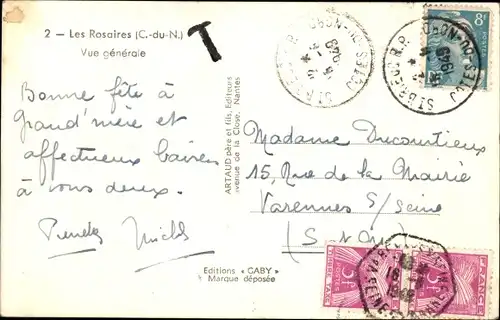 2 – Les Rosaires (C.-du-N.)
Vue générale
T
8F
Bonne fête à
Grand'mère et
affectueux baisers
à vous deux.
ARTAUD père et fils, Editeurs
avenue de la Close, Nantes
Madame Ducourtieux
15, Rue de la Mairie
Varennes S/Seine
(S et M)
Editions "GABY"
Marque déposée
ST BRIEUC R.P.
COTES-DU-NORD
1949
ST BRIEUC R.P.
COTES-DU-NORD
1949
FRANCE
5F
5F